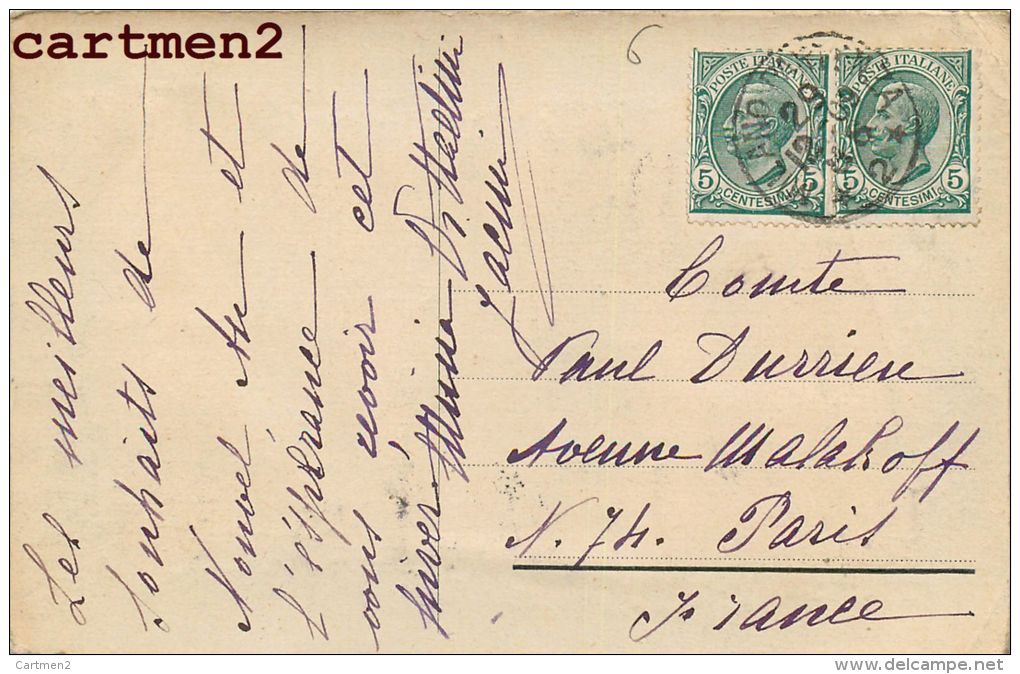 cartmen2
6
POSTE ITALIANE
5 CENTESIMI 5
POSTE ITALIANE
5 CENTESIMI 5
Les meilleurs
Souhaits de
Nouvel An et
l'espérance de
vous revoir cet
hiver
Comte
Paul Durrieu
Avenue Malakoff
N. 74. Paris
France
Cartmen2
delcampe.net